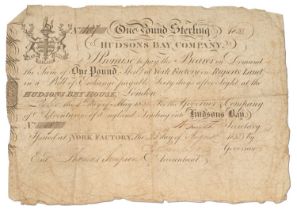 One Pound Sterling
HUDSONS BAY COMPANY
Promise to pay the Bearer on Demand
the Sum of One Pound at York Factory in Ruperts Land
in a Bill of Exchange payable Sixty days after Sight at the
HUDSONS BAY HOUSE, London
London the day of May 18 For the Governor & Company
of Adventurers of England trading into Hudsons Bay
Secretary
Issued at YORK FACTORY, the day of August 18
Governor
Ent Thomas Simpson Accountant